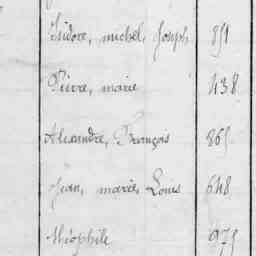 Isidore, michel, Joseph 851
Pierre, marie 438
Alexandre, François 865
Jean, marie, Louis 648
théophile 975